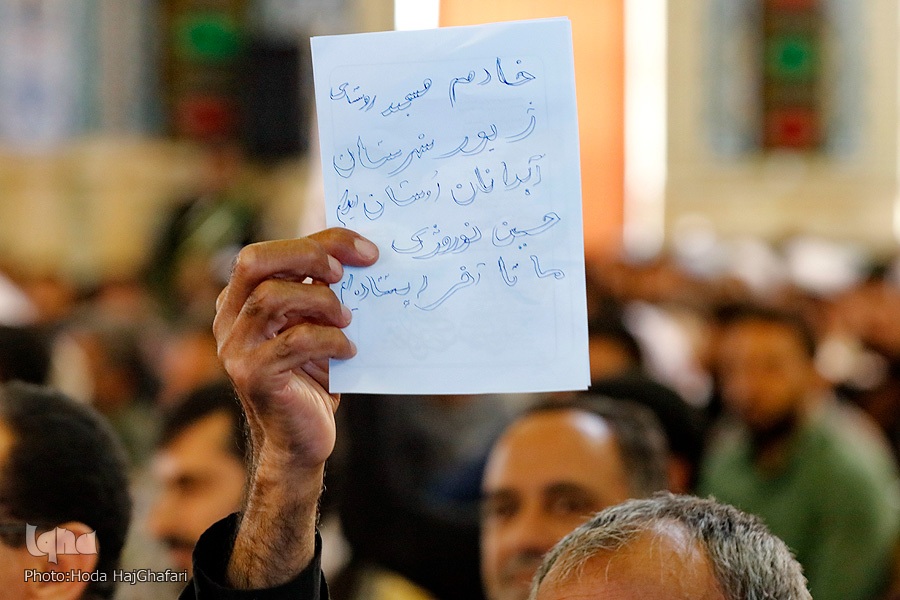 خادم مسجد روستای
ژیور شهرستان
آبدانان استان ایلام
حسین نوروزی
ما تا آخر ایستاده‌ایم
iqna
Photo:Hoda HajGhafari